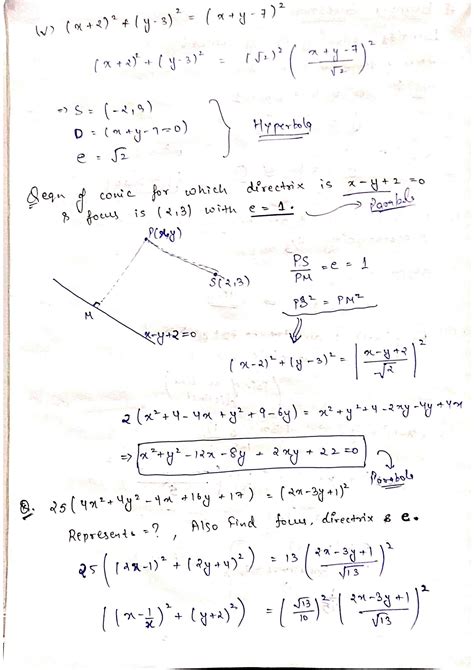 (iv) (x+2)² + (y-3)² = (x+y-7)²
(x+2)² + (y-3)² = (√2)² ((x+y-7)/√2)²
⇒ S = (-2, 3)
D = (x+y-7=0)
e = √2
Hyperbola
Q eqn of conic for which directrix is x-y+2=0
& focus is (2,3) with e=1. → Parabola
P(x,y)
S(2,3)
M
x-y+2=0
PS/PM = e = 1
PS² = PM²
(x-2)² + (y-3)² = |(x-y+2)/√2|²
2(x²+4-4x+y²+9-6y) = x²+y²+4-2xy-4y+4x
⇒ x²+y²-12x-8y+2xy+22=0
Parabola
Q. 25(4x²+4y²-4x+16y+17) = (2x-3y+1)²
Represents = ?, Also find focus, directrix & e.
25((2x-1)² + (2y+4)²) = 13((2x-3y+1)/√13)²
((x-1/2)² + (y+2)²) = (√13/10)² ((2x-3y+1)/√13)²